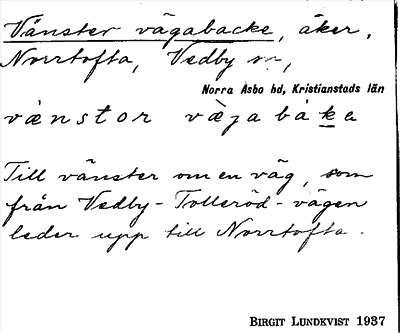 Vänster vägabacke, åker,
Norrtofta, Vedby sn,
Norra Åsbo hd, Kristianstads län
vænstor væja båka
Till vänster om en väg, som
från Vedby-Tolleröd-vägen
leder upp till Norrtofta.
BIRGIT LUNDKVIST 1937